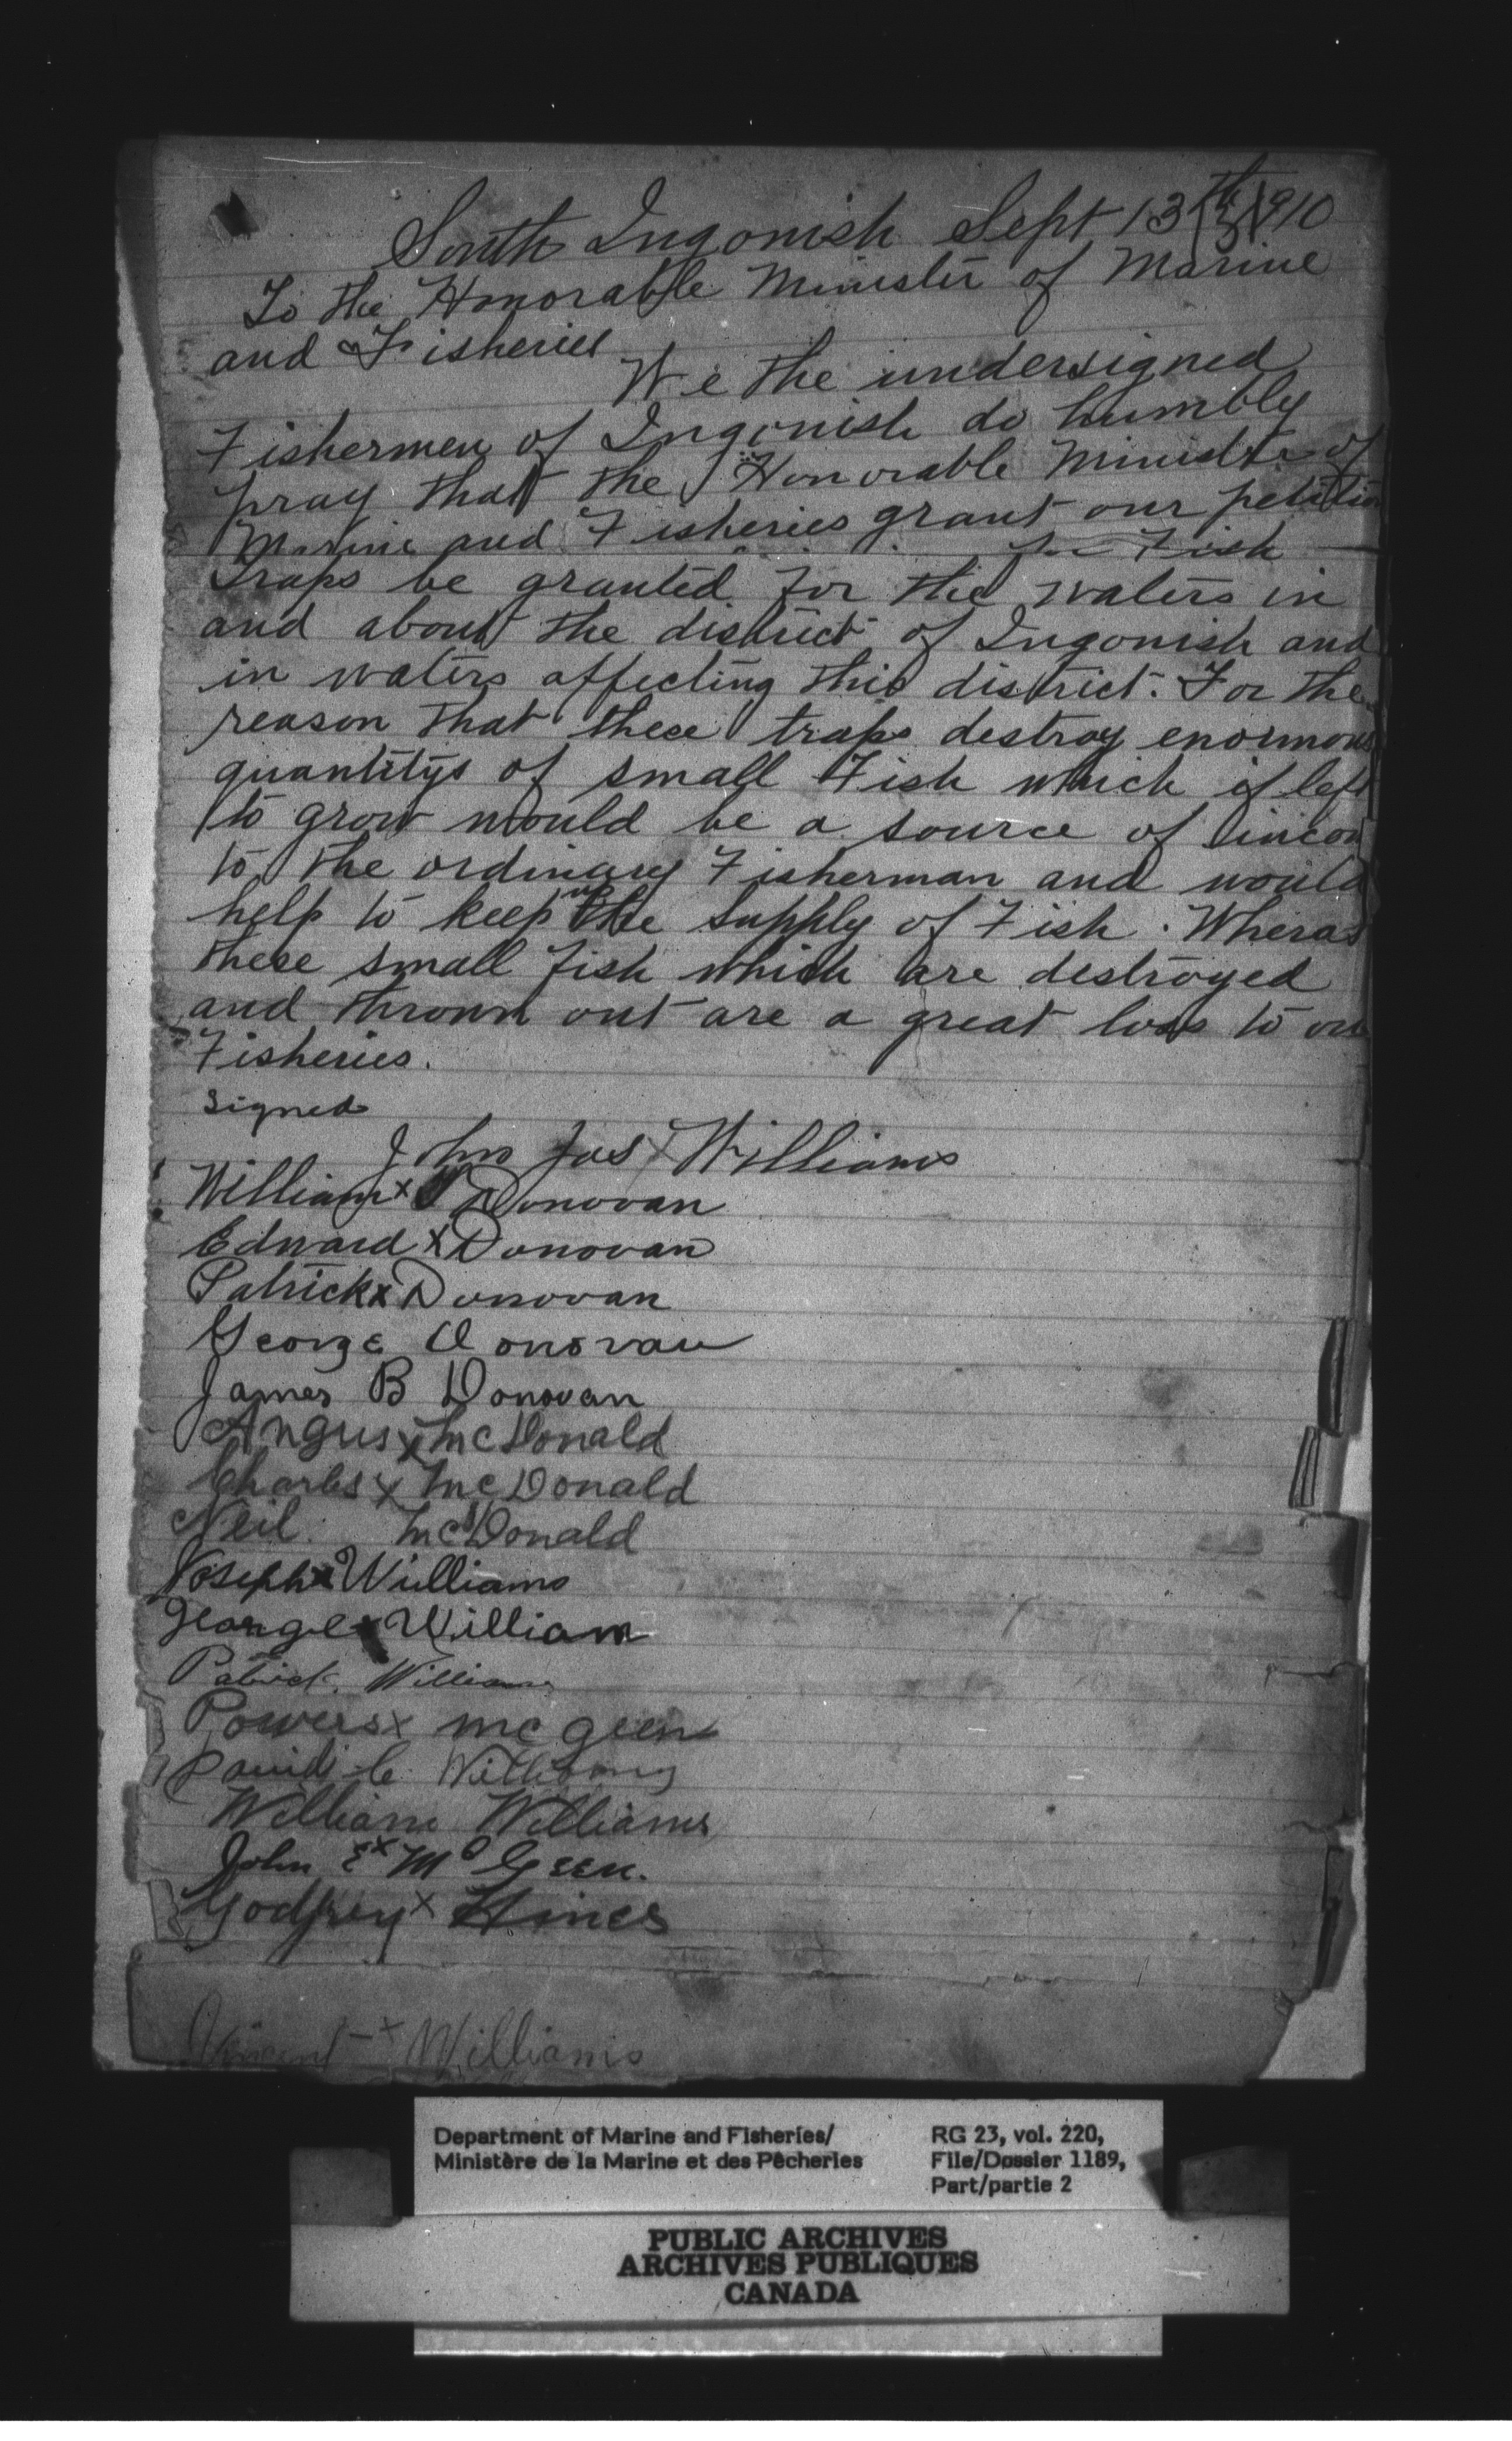 South Ingonish Sept 13th 1910
To the Honorable Minister of Marine
and Fisheries
We the undersigned
Fishermen of Ingonish do humbly
pray that the Honorable Minister of
Marine and Fisheries grant our petition
for Fish
Traps be granted for the waters in
and about the district of Ingonish and
in waters affecting this district. For the
reason that these traps destroy enormous
quantitys of small Fish which if left
to grow would be a source of incom
to the ordinary Fisherman and would
help to keep up the supply of Fish. Wheras
these small fish which are destroyed
and thrown out are a great loss to our
Fisheries.
signed
John Jas x Williams
William x J Donovan
Edward x Donovan
Patrick x Donovan
George Donovan
James B Donovan
Angus x McDonald
Charles x McDonald
Neil McDonald
Joseph x Williams
George x William
Patrick Williams
Powers x mc geen
David C. Williams
William Williams
John E x Mc Geen.
Godfrey x Hines
Vincent x Williams
Department of Marine and Fisheries/
Ministère de la Marine et des Pêcheries
RG 23, vol. 220,
File/Dossier 1189,
Part/partie 2
PUBLIC ARCHIVES
ARCHIVES PUBLIQUES
CANADA